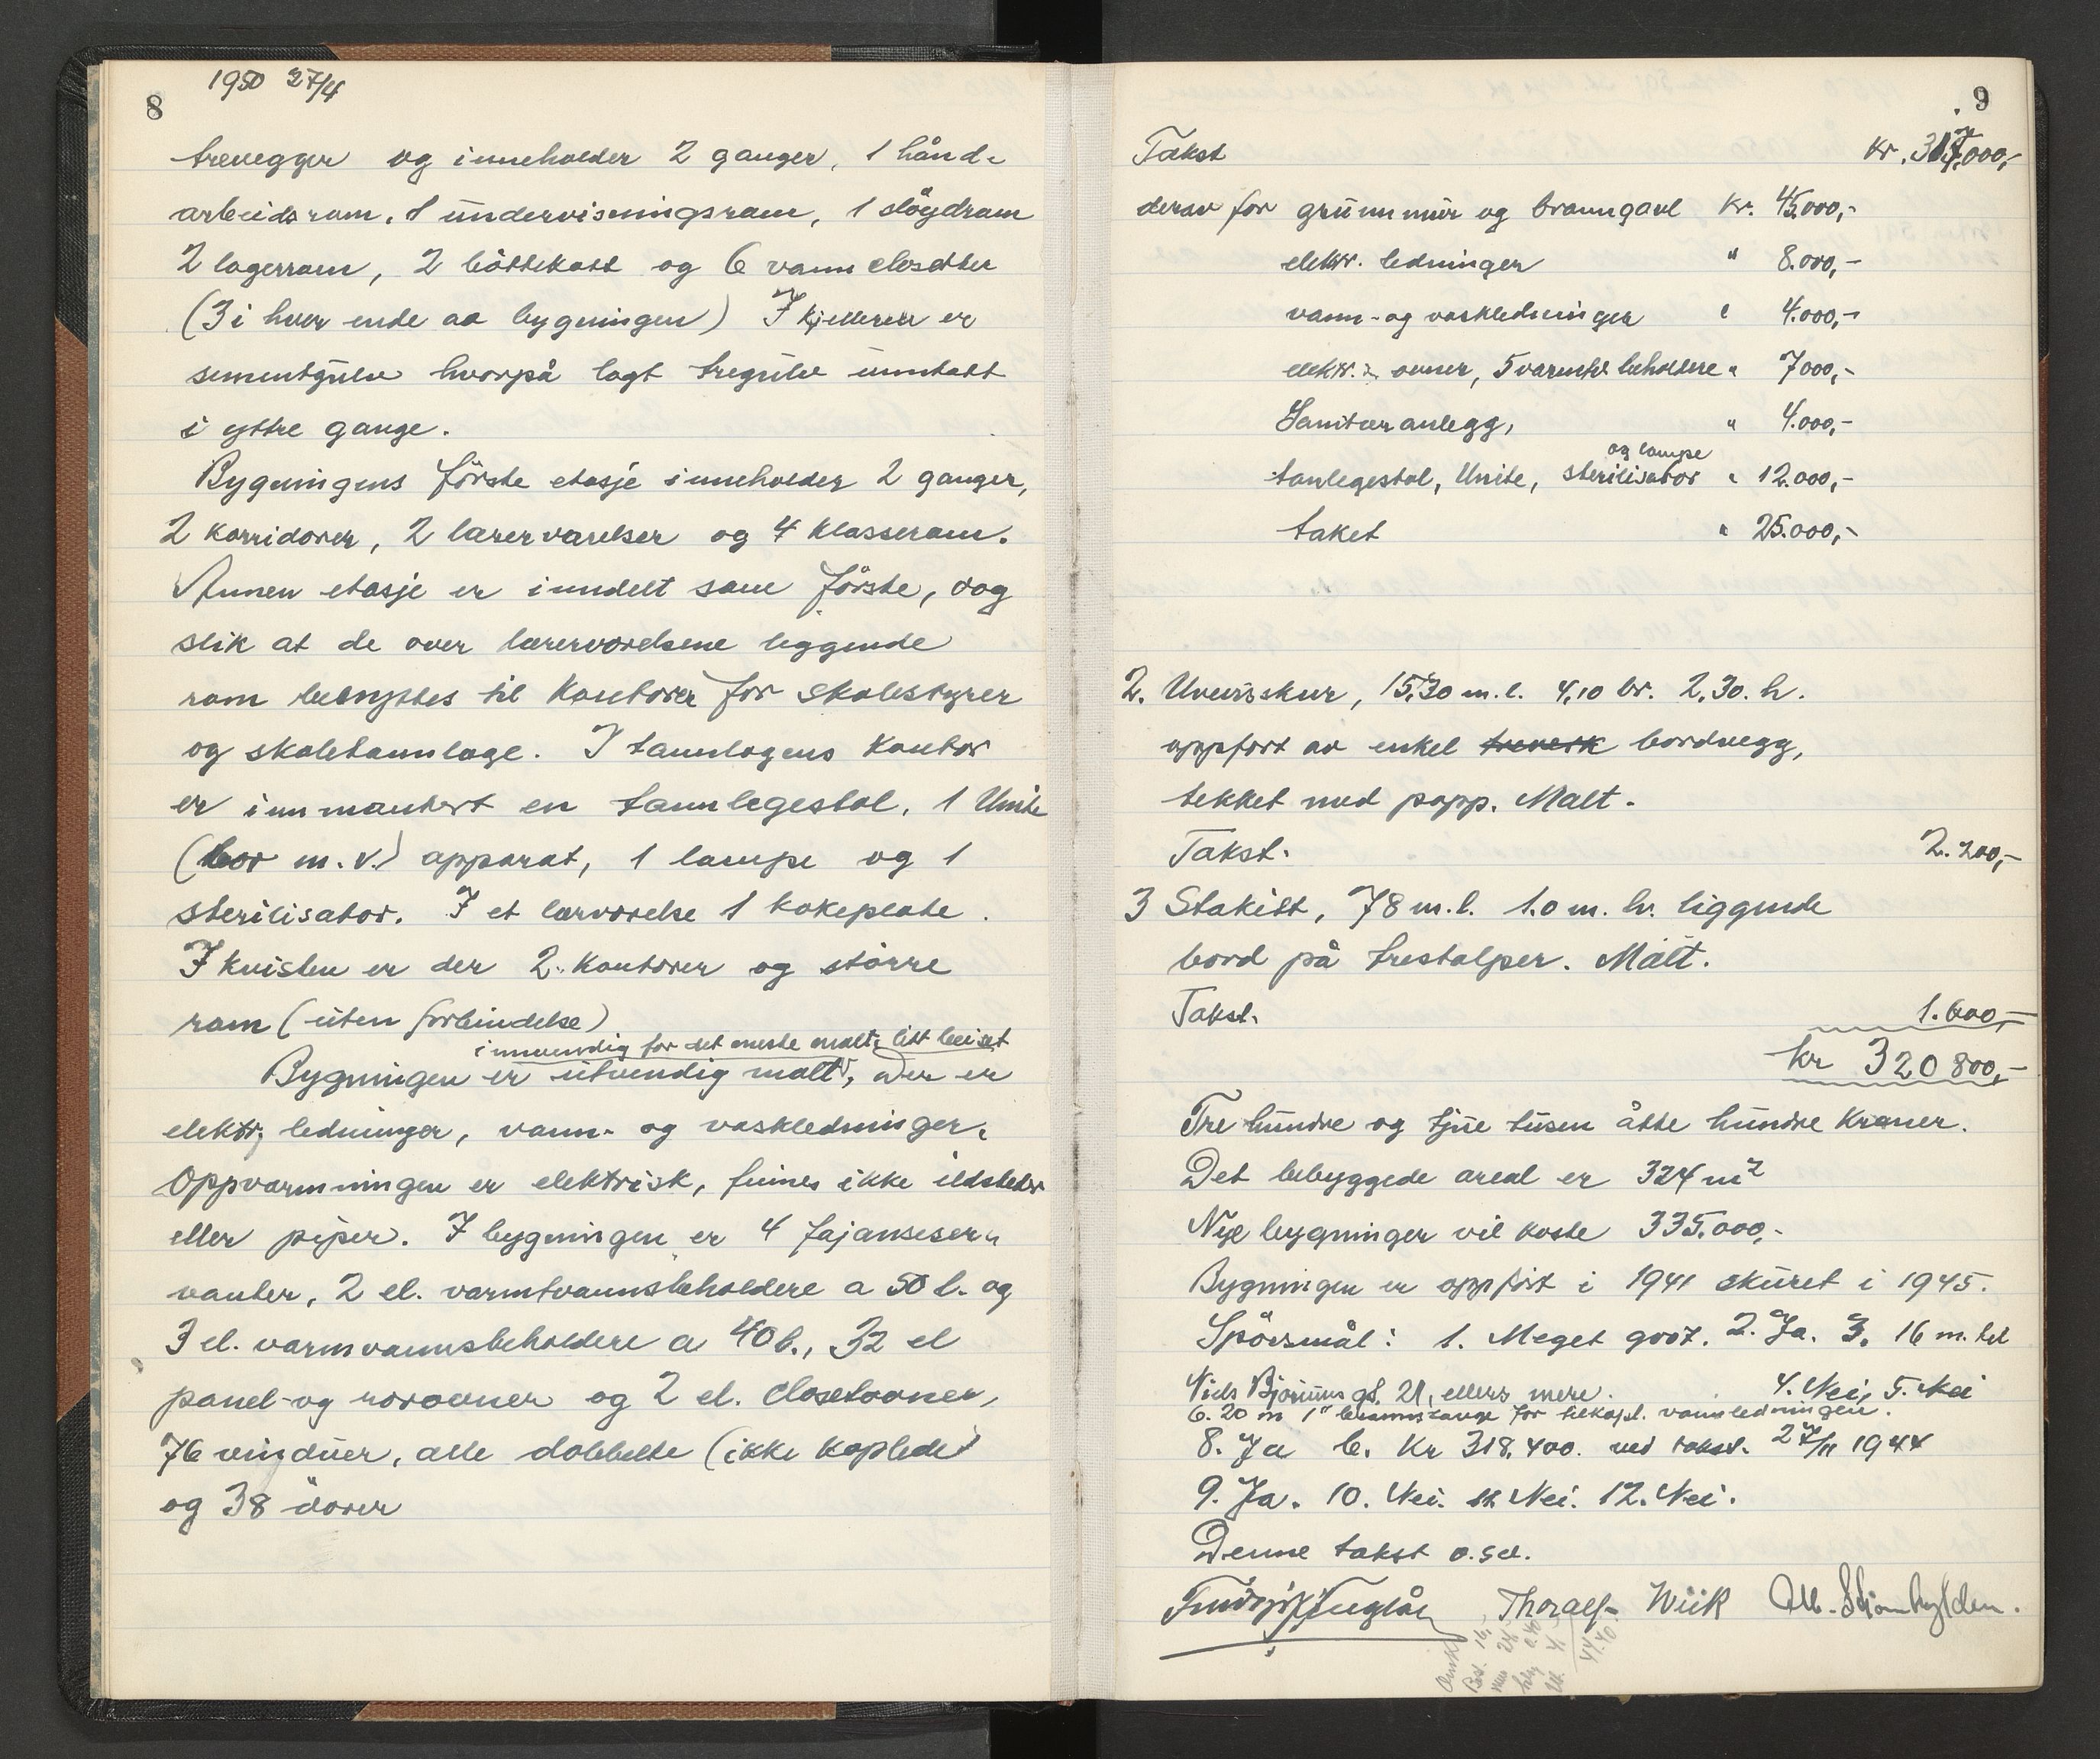 8
1950 27/4
trevegger og inneholder 2 ganger, 1 hånd-
arbeidsrom, 1 undervisningsrom, 1 sløydrom
2 lagerrom, 2 bøttekott og 6 vannclosetter
(3 i hver ende av bygningen) I kjelleren er
sementgulv hvorpå lagt tregulv unntatt
i yttre gange.
Bygningens første etasje inneholder 2 ganger,
2 korridorer, 2 lærerværelser og 4 klasserom.
Annen etasje er inndelt som første, dog
slik at de over lærerværelsene liggende
rom benyttes til kontorer for skolestyrer
og skoletannlæge. I tannlægens kontor
er innmontert en tannlegestol, 1 Unite
(bor m.v.) apparat, 1 lampe og 1
sterilisator. I et lærværelse 1 kokeplate.
I kvisten er der 2 kontorer og større
rom (uten forbindelse)
innvendig for det meste malt, litt beiset
Bygningen er utvendig malt, Der er
elektr. ledninger, vann- og vaskledninger.
Oppvarmningen er elektrisk, finnes ikke ildsteder
eller piper. I bygningen er 4 fajanseser-
vanter, 2 el. varmtvannsbeholdere a 50 l. og
3 el. varmvannsbeholdere a 40 l., 32 el
panel- og rørovner og 2 el. closetovner,
76 vinduer, alle dobbelte (ikke koplede)
og 38 dører
9
Takst kr. 317.000,-
derav for grunnmur og branngavl kr. 45.000,-
elektr. ledninger " 8.000,-
vann- og vaskledninger " 4.000,-
elektr. ovner, 5 varmtv. beholdere " 7000,-
Sanitæranlegg, " 4.000,-
og lampe
tanlegestol, Unite, sterilisator " 12.000,-
taket " 25.000,-
2. Uveirsskur, 15,30 m.l. 4,10 br. 2,30. h.
oppført av enkel treverk bordvegg,
tekket med papp. Malt.
Takst. 2.200,-
3 Stakitt, 78 m.l. 1.0 m. h. liggende
bord på trestolper. Malt.
Takst. 1.600,-
kr 320 800,-
Tre hundre og tjue tusen åtte hundre kroner.
Det bebyggede areal er 324 m²
Nye bygninger vil koste 335.000,-
Bygningen er oppført i 1941 skuret i 1945.
Spørsmål: 1. Meget godt. 2. Ja. 3. 16 m. til
Niels Bjørums gt. 21, ellers mere. 4. Nei, 5. Nei
6. 20 m 1" for tilkopl. vannledningen.
8. Ja b. Kr 318.400. ved takst. 27/11 1944
9. Ja. 10. Nei. 11. Nei. 12. Nei.
Denne takst o.s.v.
Thoralf Wiik